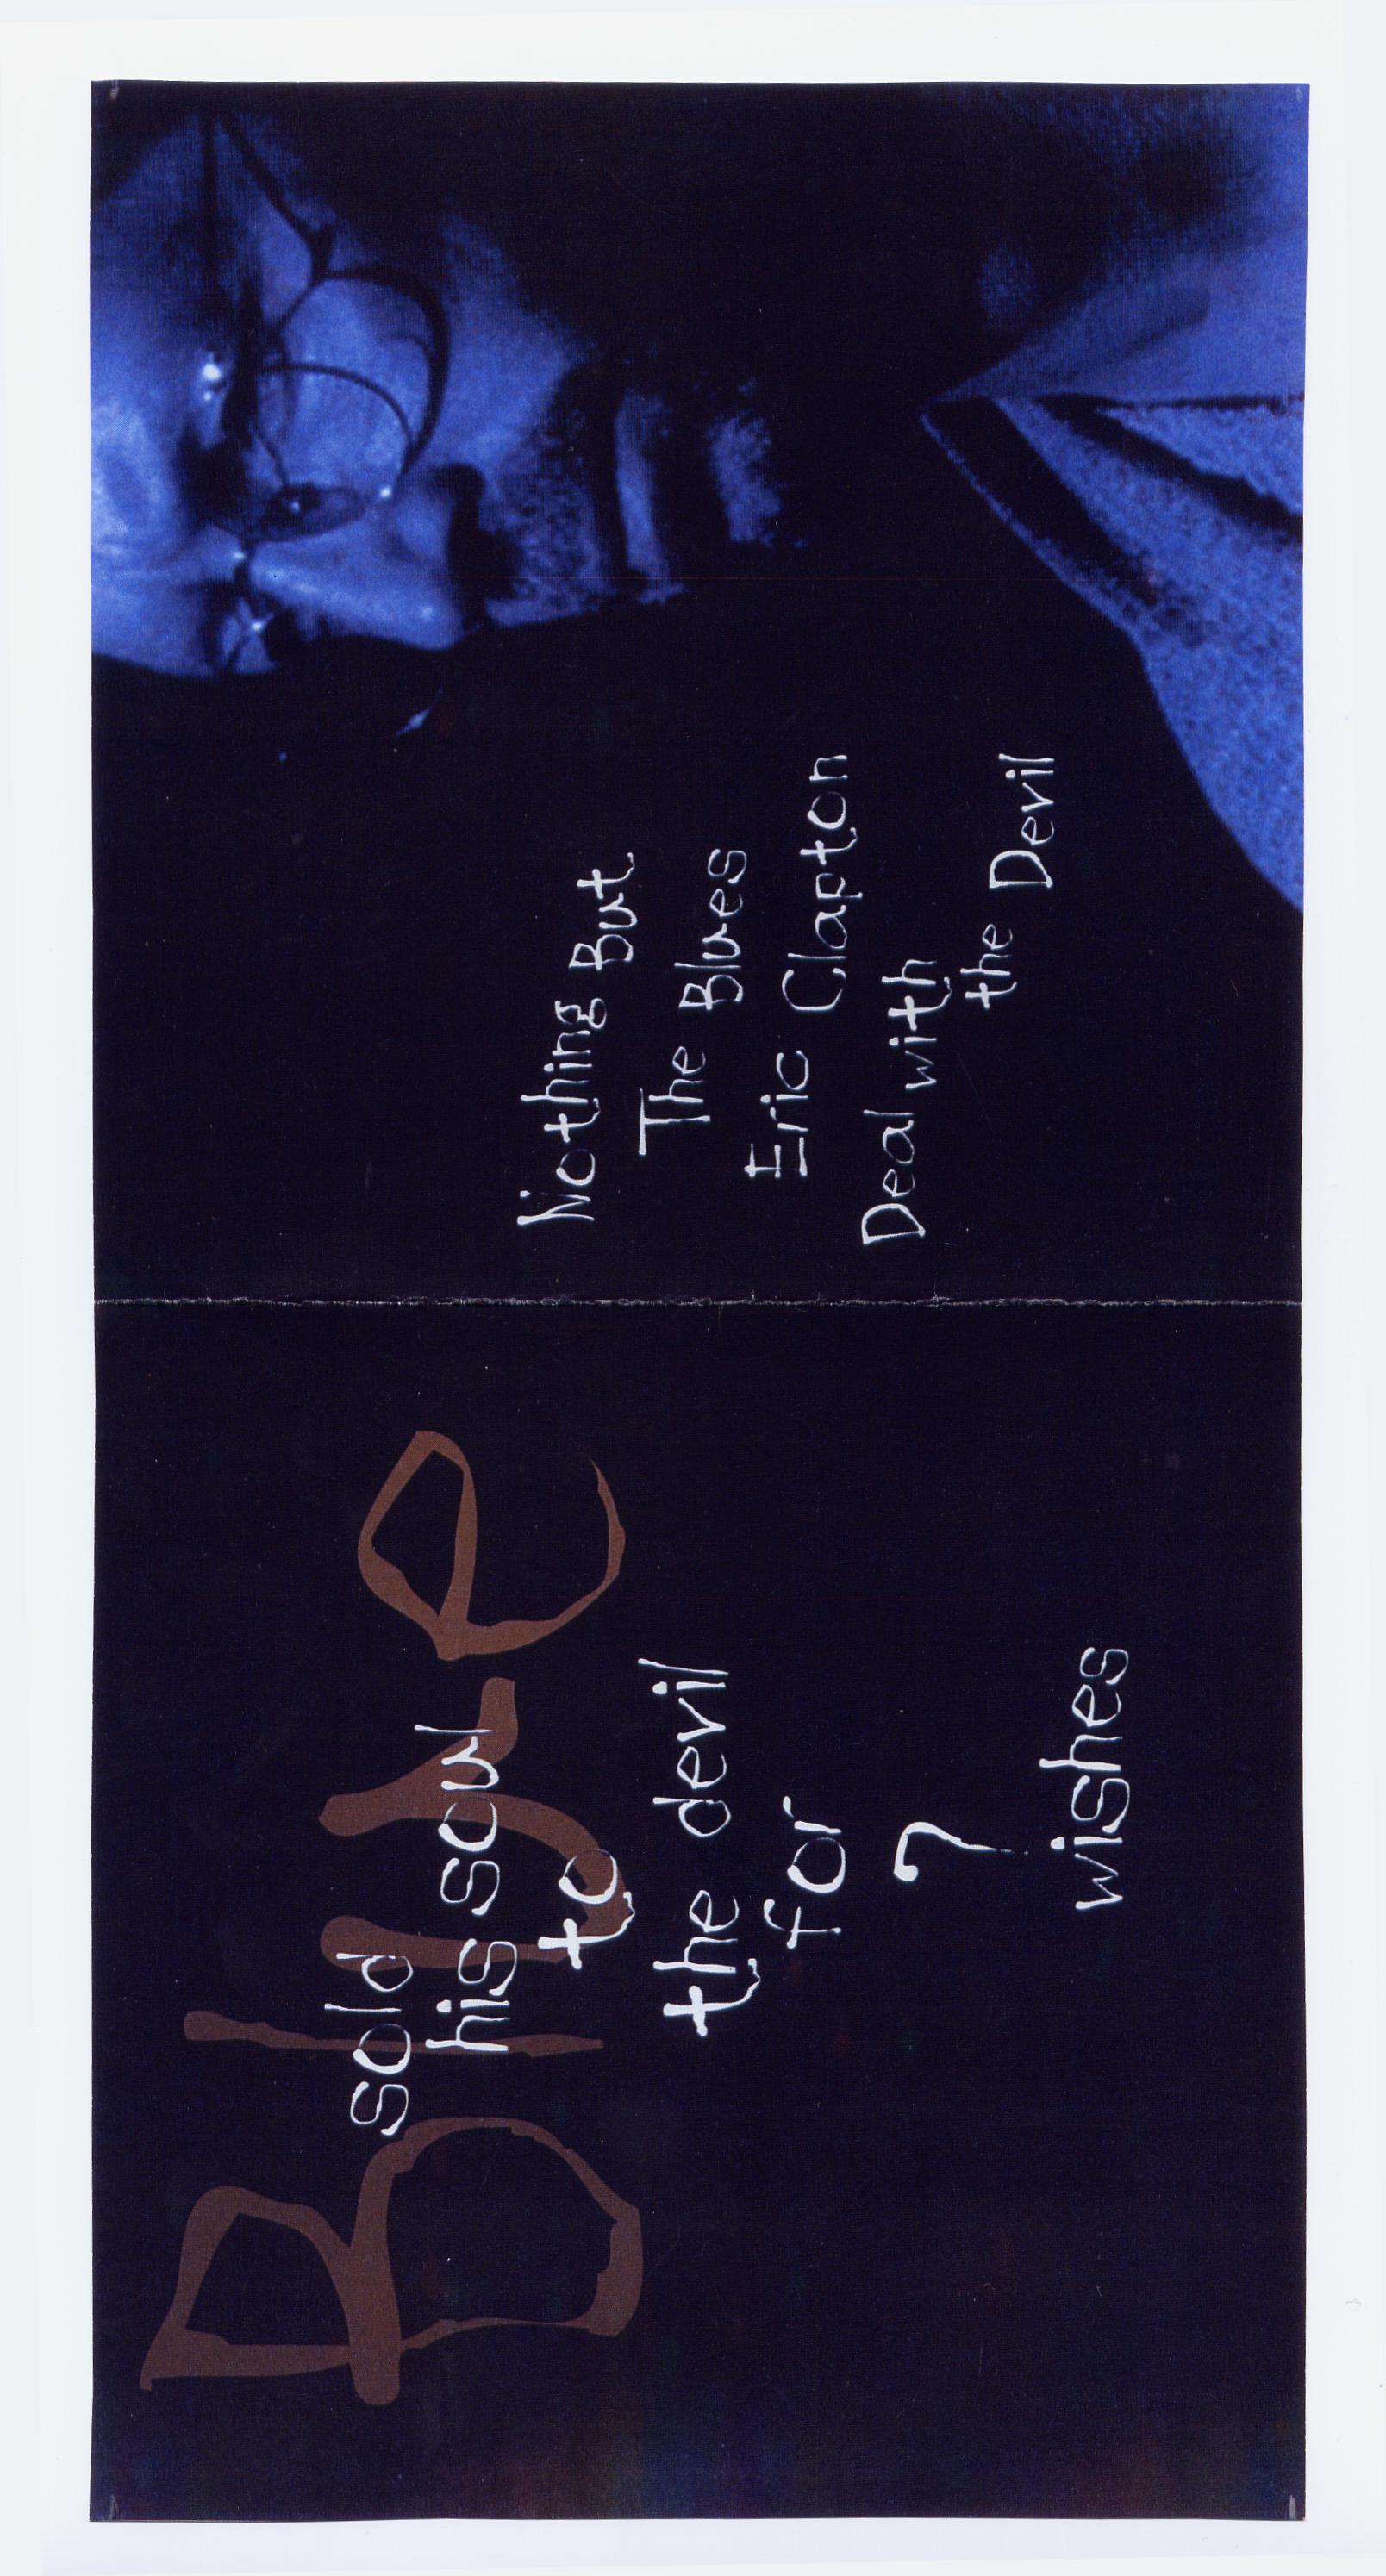 Blue
sold
his soul
to
the devil
for
7
wishes
Nothing But
The Blues
Eric Clapton
Deal with
the Devil